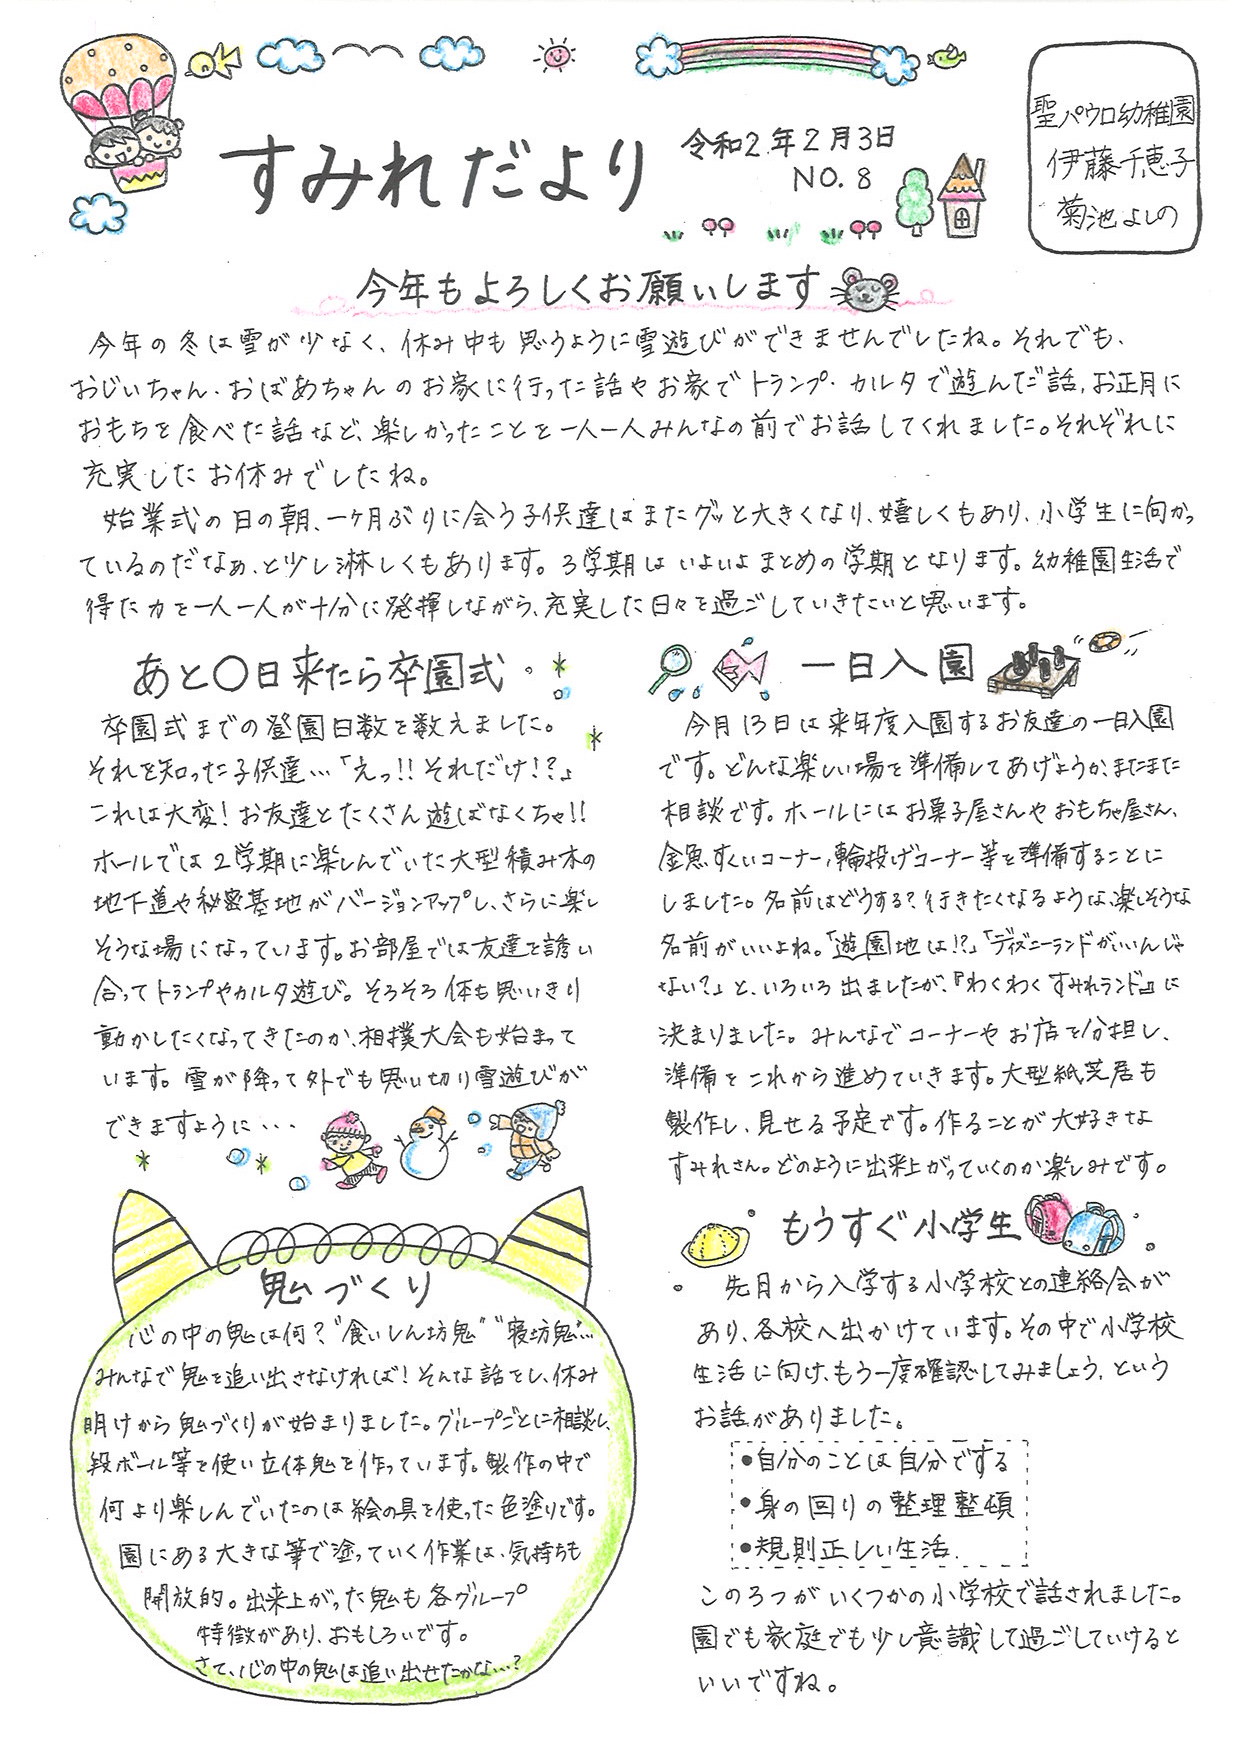 すみれだより
令和2年2月3日
NO. 8
聖パウロ幼稚園
伊藤千恵子
菊池よしの
今年もよろしくお願いします
今年の冬は雪が少なく、休み中も思うように雪遊びができませんでしたね。それでも、
おじいちゃん・おばあちゃんのお家に行った話やお家でトランプ・カルタで遊んだ話、お正月に
おもちを食べた話など、楽しかったことを一人一人みんなの前でお話してくれました。それぞれに
充実したお休みでしたね。
始業式の日の朝、一ヶ月ぶりに会う子供達はまたグッと大きくなり、嬉しくもあり、小学生に向かっ
ているのだなぁ、と少し淋しくもあります。3学期はいよいよまとめの学期となります。幼稚園生活で
得た力を一人一人が十分に発揮しながら、充実した日々を過ごしていきたいと思います。
あと〇日来たら卒園式
卒園式までの登園日数を数えました。
それを知った子供達…「えっ!!それだけ!?」
これは大変!お友達とたくさん遊ばなくちゃ!!
ホールでは2学期に楽しんでいた大型積み木の
地下道や秘密基地がバージョンアップし、さらに楽し
そうな場になっています。お部屋では友達を誘い
合ってトランプやカルタ遊び。そろそろ体も思いきり
動かしたくなってきたのか、相撲大会も始まって
います。雪が降って外でも思い切り雪遊びが
できますように・・・
鬼づくり
心の中の鬼は何?"食いしん坊鬼""寝坊鬼"…
みんなで鬼を追い出さなければ!そんな話をし、休み
明けから鬼づくりが始まりました。グループごとに相談し、
段ボール等を使い立体鬼を作っています。製作の中で
何より楽しんでいたのは絵の具を使った色塗りです。
園にある大きな筆で塗っていく作業は、気持ちも
開放的。出来上がった鬼も各グループ
特徴があり、おもしろいです。
さて、心の中の鬼は追い出せたかな…?
一日入園
今月13日は来年度入園するお友達の一日入園
です。どんな楽しい場を準備してあげようか、またまた
相談です。ホールにはお菓子屋さんやおもちゃ屋さん、
金魚すくいコーナー、輪投げコーナー等を準備することに
しました。名前はどうする?行きたくなるような、楽しそうな
名前がいいよね。「遊園地は!?」「ディズニーランドがいいんじゃ
ない?」と、いろいろ出ましたが、『わくわくすみれランド』に
決まりました。みんなでコーナーやお店を分担し、
準備をこれから進めていきます。大型紙芝居も
製作し、見せる予定です。作ることが大好きな
すみれさん。どのように出来上がっていくのか楽しみです。
もうすぐ小学生
先月から入学する小学校との連絡会が
あり、各校へ出かけています。その中で小学校
生活に向け、もう一度確認してみましょう、という
お話がありました。
•自分のことは自分でする
•身の回りの整理整頓
•規則正しい生活
この3つがいくつかの小学校で話されました。
園でも家庭でも少し意識して過ごしていけると
いいですね。